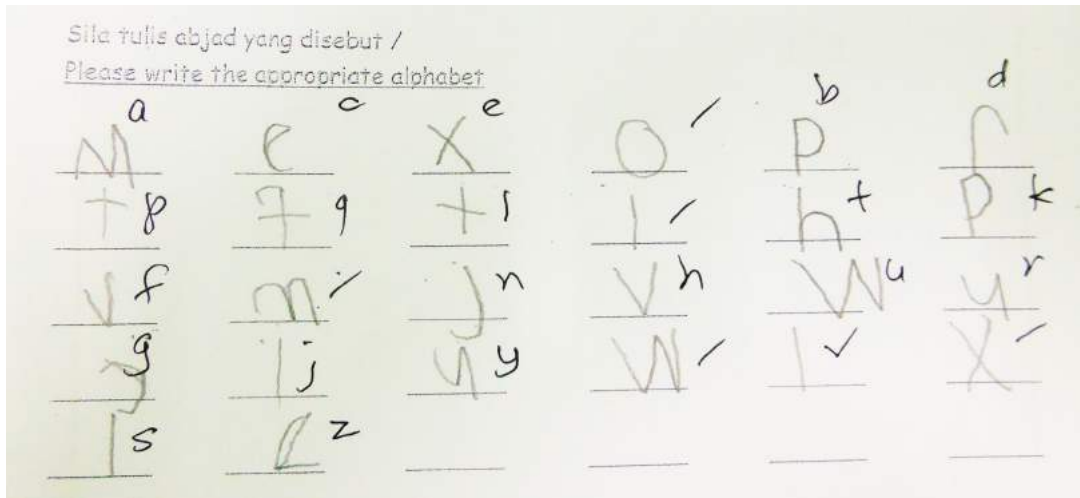 Sila tulis abjad yang disebut /
Please write the appropriate alphabet
a c e b d
M e x O / P r
t 8 7 9 t l l / h t P k
v f m / j n v h W u y r
y g i j y y W / l ✓ X /
l s z